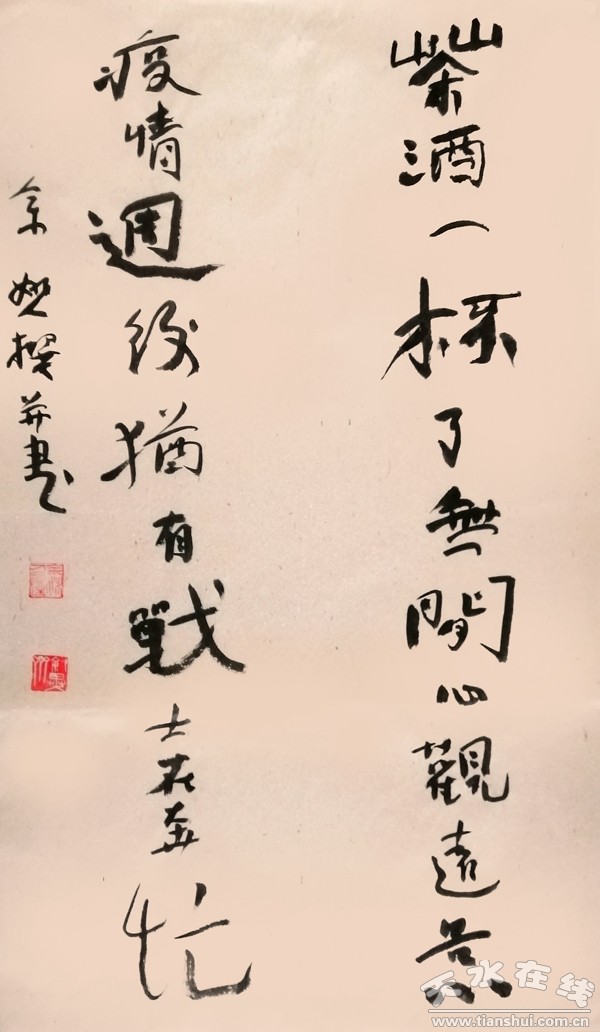 茶酒一杯了無閒心觀遠景
疫情週後猶有戰士在奔忙
撰并書
天水在线
www.tianshui.com.cn